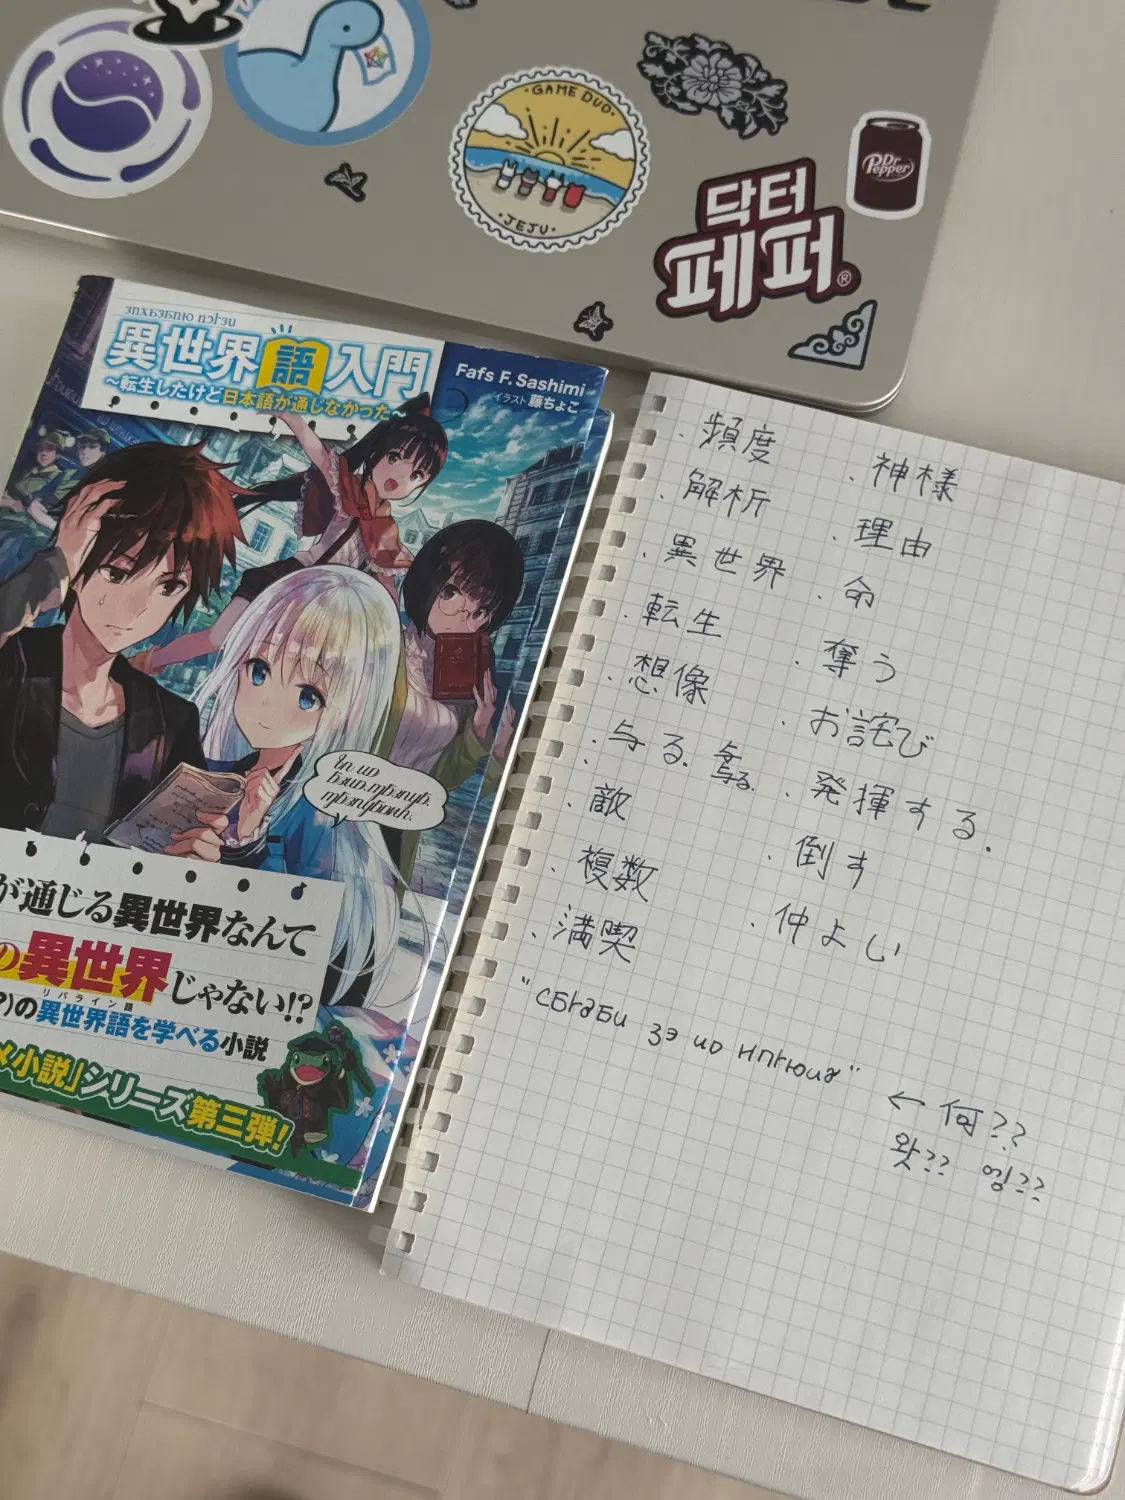 GAME DUO
JEJU
Dr
Pepper
닥터
페퍼®
異世界語入門
~転生したけど日本語が通じなかった~
Fafs F. Sashimi
イラスト 藤ちょこ
が通じる異世界なんて
の異世界じゃない!?
リパライン語
?)の異世界語を学べる小説
メ小説」シリーズ第三弾!
・頻度
・解析
・異世界
・転生
・想像
・与る.
・敵
・複数
・満喫
・神様
・理由
・命
・奪う
・お詫び
・発揮する.
・倒す
・仲よし
← 何??
왓?? 엥??